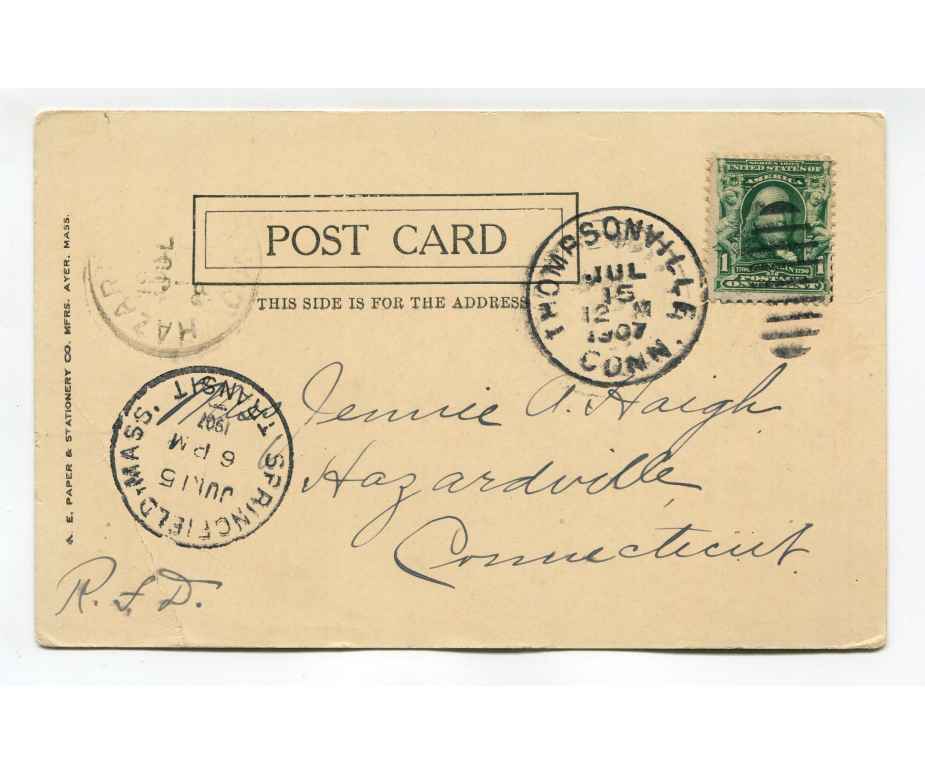 SERIES 1902
UNITED STATES OF
AMERICA
1 1
POSTAGE
ONE CENT
POST CARD
THIS SIDE IS FOR THE ADDRESS
THOMPSONVILLE
JUL
15
12 M
1907
CONN.
HAZARD
JUL
SPRINGFIELD, MASS.
TRANSIT
JUL 15
6 PM
1907
Jennie A. Haigh
Hazardville,
Connecticut.
R.F.D.
E. PAPER & STATIONERY CO. MFRS. AYER, MASS.